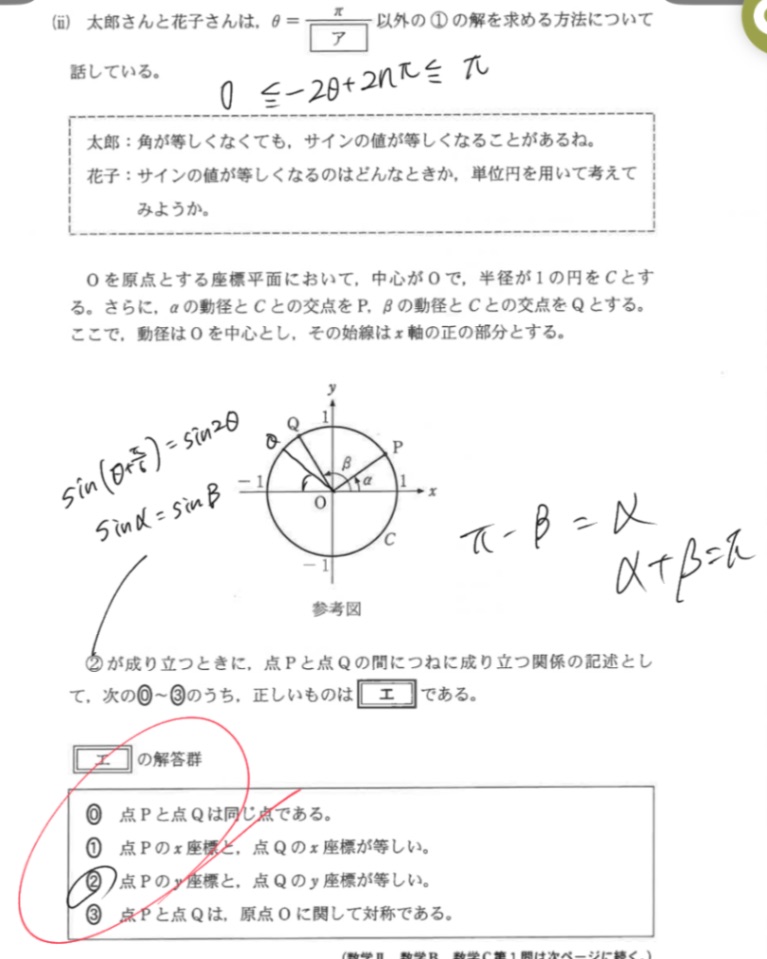 (ii) 太郎さんと花子さんは，θ = π/ア 以外の①の解を求める方法について
話している。
0 ≦ -2θ+2nπ ≦ π
太郎：角が等しくなくても，サインの値が等しくなることがあるね。
花子：サインの値が等しくなるのはどんなときか，単位円を用いて考えて
みようか。
Oを原点とする座標平面において，中心がOで，半径が1の円をCとす
る。さらに，αの動径とCとの交点をP，βの動径とCとの交点をQとする。
ここで，動径はOを中心とし，その始線はx軸の正の部分とする。
y
1
Q
P
β
α
-1
O
1
x
C
-1
sin(θ+π/6) = sin2θ
sinα = sinβ
π - β = α
α+β=π
参考図
②が成り立つときに，点Pと点Qの間につねに成り立つ関係の記述とし
て，次の⓪～③のうち，正しいものは エ である。
エ の解答群
⓪ 点Pと点Qは同じ点である。
① 点Pのx座標と，点Qのx座標が等しい。
② 点Pのy座標と，点Qのy座標が等しい。
③ 点Pと点Qは，原点Oに関して対称である。
(数学Ⅱ，数学B，数学C第1問は次ページに続く。)